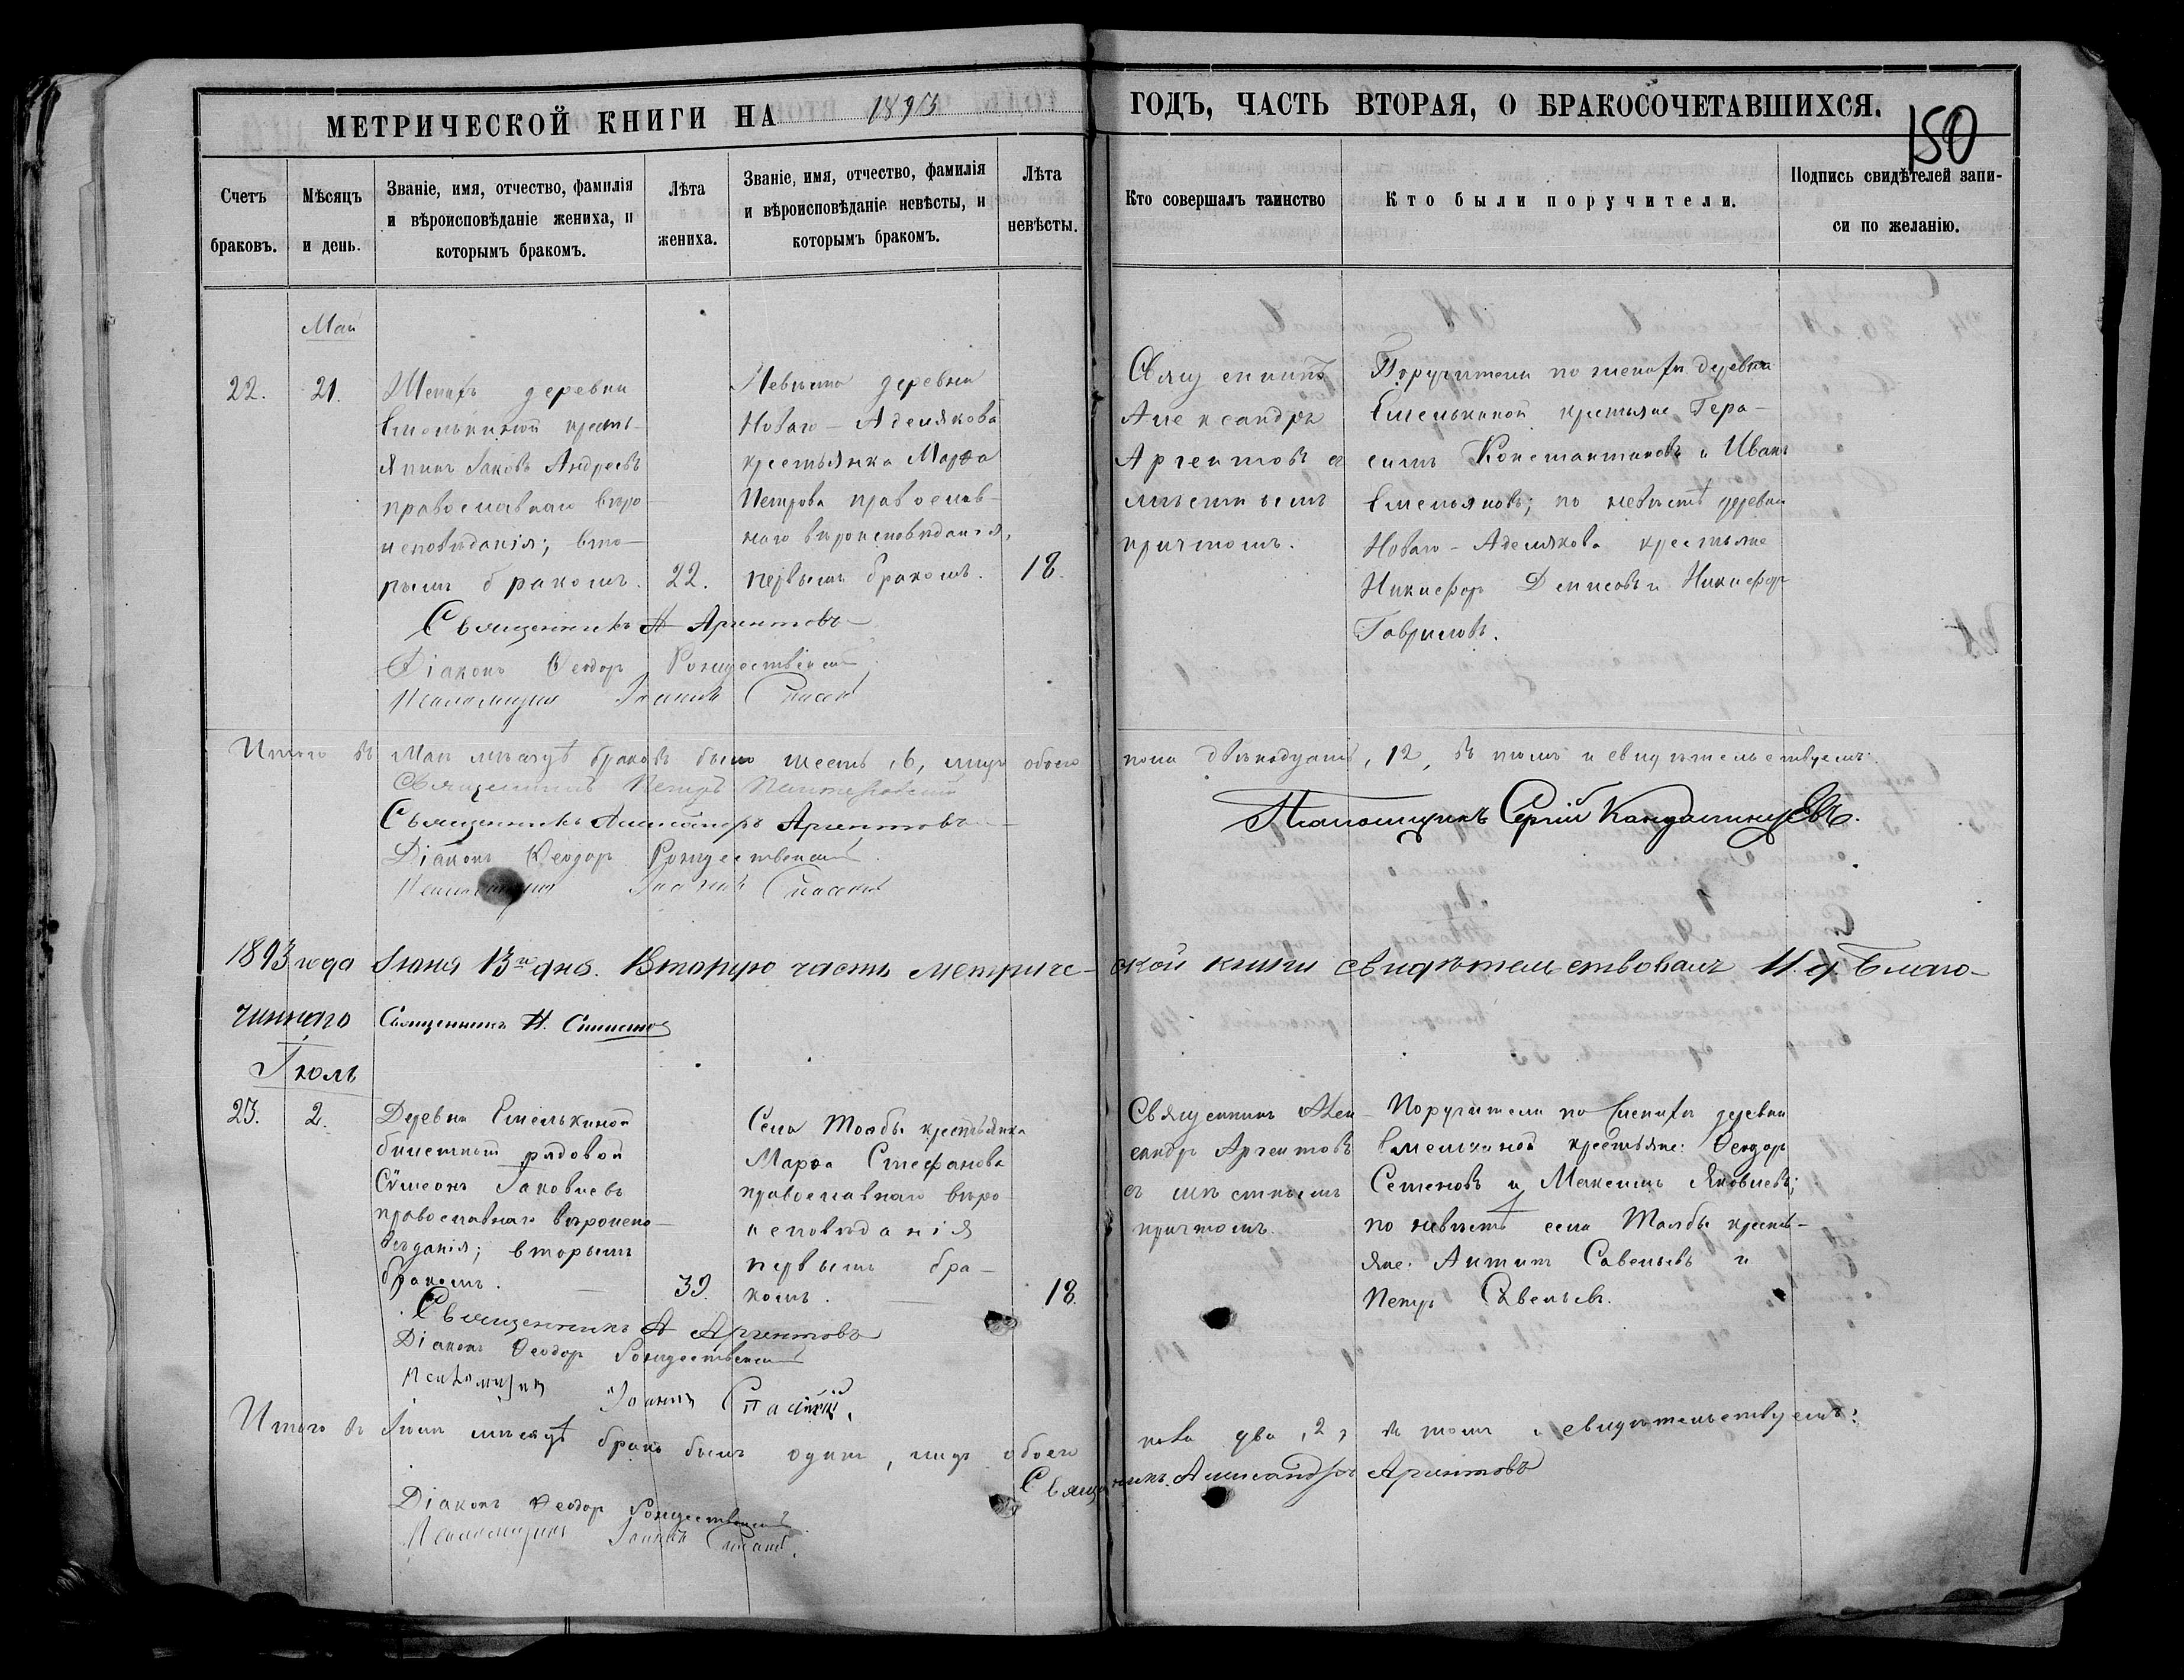 МЕТРИЧЕСКОЙ КНИГИ НА 1893 ГОДЪ, ЧАСТЬ ВТОРАЯ, О БРАКОСОЧЕТАВШИХСЯ.
150
Счетъ браковъ.
Мѣсяцъ и день.
Званіе, имя, отчество, фамилія
и вѣроисповѣданіе жениха, и
которымъ бракомъ.
Лѣта
жениха.
Званіе, имя, отчество, фамилія
и вѣроисповѣданіе невѣсты, и
которымъ бракомъ.
Лѣта
невѣсты.
Кто совершалъ таинство
Кто были поручители.
Подпись свидѣтелей запи-
си по желанію.
Май
22.
21.
Женихъ деревни
Емелькиной кресть-
янинъ Іаковъ Андреевъ
православнаго вѣро
исповѣданія; вто-
рымъ бракомъ.
22.
Невѣста деревни
Новаго-Аделякова
крестьянка Марѳа
Петрова православ-
наго вѣроисповѣданія,
первымъ бракомъ.
18.
Священникъ
Александръ
Аргентовъ съ
мѣстнымъ
причтомъ.
Поручители по женихѣ деревни
Емелькиной крестьяне Гера-
симъ Константиновъ и Иванъ
Емельяновъ; по невѣстѣ деревни
Новаго-Аделякова крестьяне
Никифоръ Денисовъ и Никифоръ
Гавриловъ.
Священникъ А Аргентовъ
Діаконъ Ѳеодоръ Рождественскій
Псаломщикъ Іоаннъ Спасскій
Итого въ Маѣ мѣсяцѣ браковъ было шесть, 6, лицъ обоего пола двѣнадцать, 12, въ томъ и свидѣтельствуемъ:
Священникъ Петръ
Священникъ Александръ Аргентовъ
Діаконъ Ѳеодоръ Рождественскій
Псаломщикъ Іоаннъ Спасскій
Псаломщикъ Сергій
1893 года Іюня 13го дня. Вторую часть метриче-ской книги свидѣтельствовалъ И. д. Благо-
чиннаго Священникъ Н.
Іюль
23.
2.
Деревни Емелькиной
билетный рядовой
Сѵмеонъ Іаковлевъ
православнаго вѣроиспо-
вѣданія; вторымъ
бракомъ.
39.
Села Тоабы крестьянка
Марѳа Стефанова
православнаго вѣро-
исповѣданія
первымъ бра-
комъ.
18.
Священникъ Алек-
сандръ Аргентовъ
съ мѣстнымъ
причтомъ.
Поручители по женихѣ деревни
Емелькиной крестьяне: Ѳеодоръ
Семеновъ и Максимъ Яковлевъ;
по невѣстѣ села Тоабы кресть-
яне: Антипъ Савельевъ и
Петръ Савельевъ.
Священникъ А Аргентовъ
Діаконъ Ѳеодоръ Рождественскій
Псаломщикъ Іоаннъ Спасскій.
Итого въ Іюлѣ мѣсяцѣ бракъ былъ одинъ, лицъ обоего пола два, 2, въ томъ и свидѣтельствуемъ:
Священникъ Александръ Аргентовъ
Діаконъ Ѳеодоръ Рождественскій
Псаломщикъ Іоаннъ Спасскій.